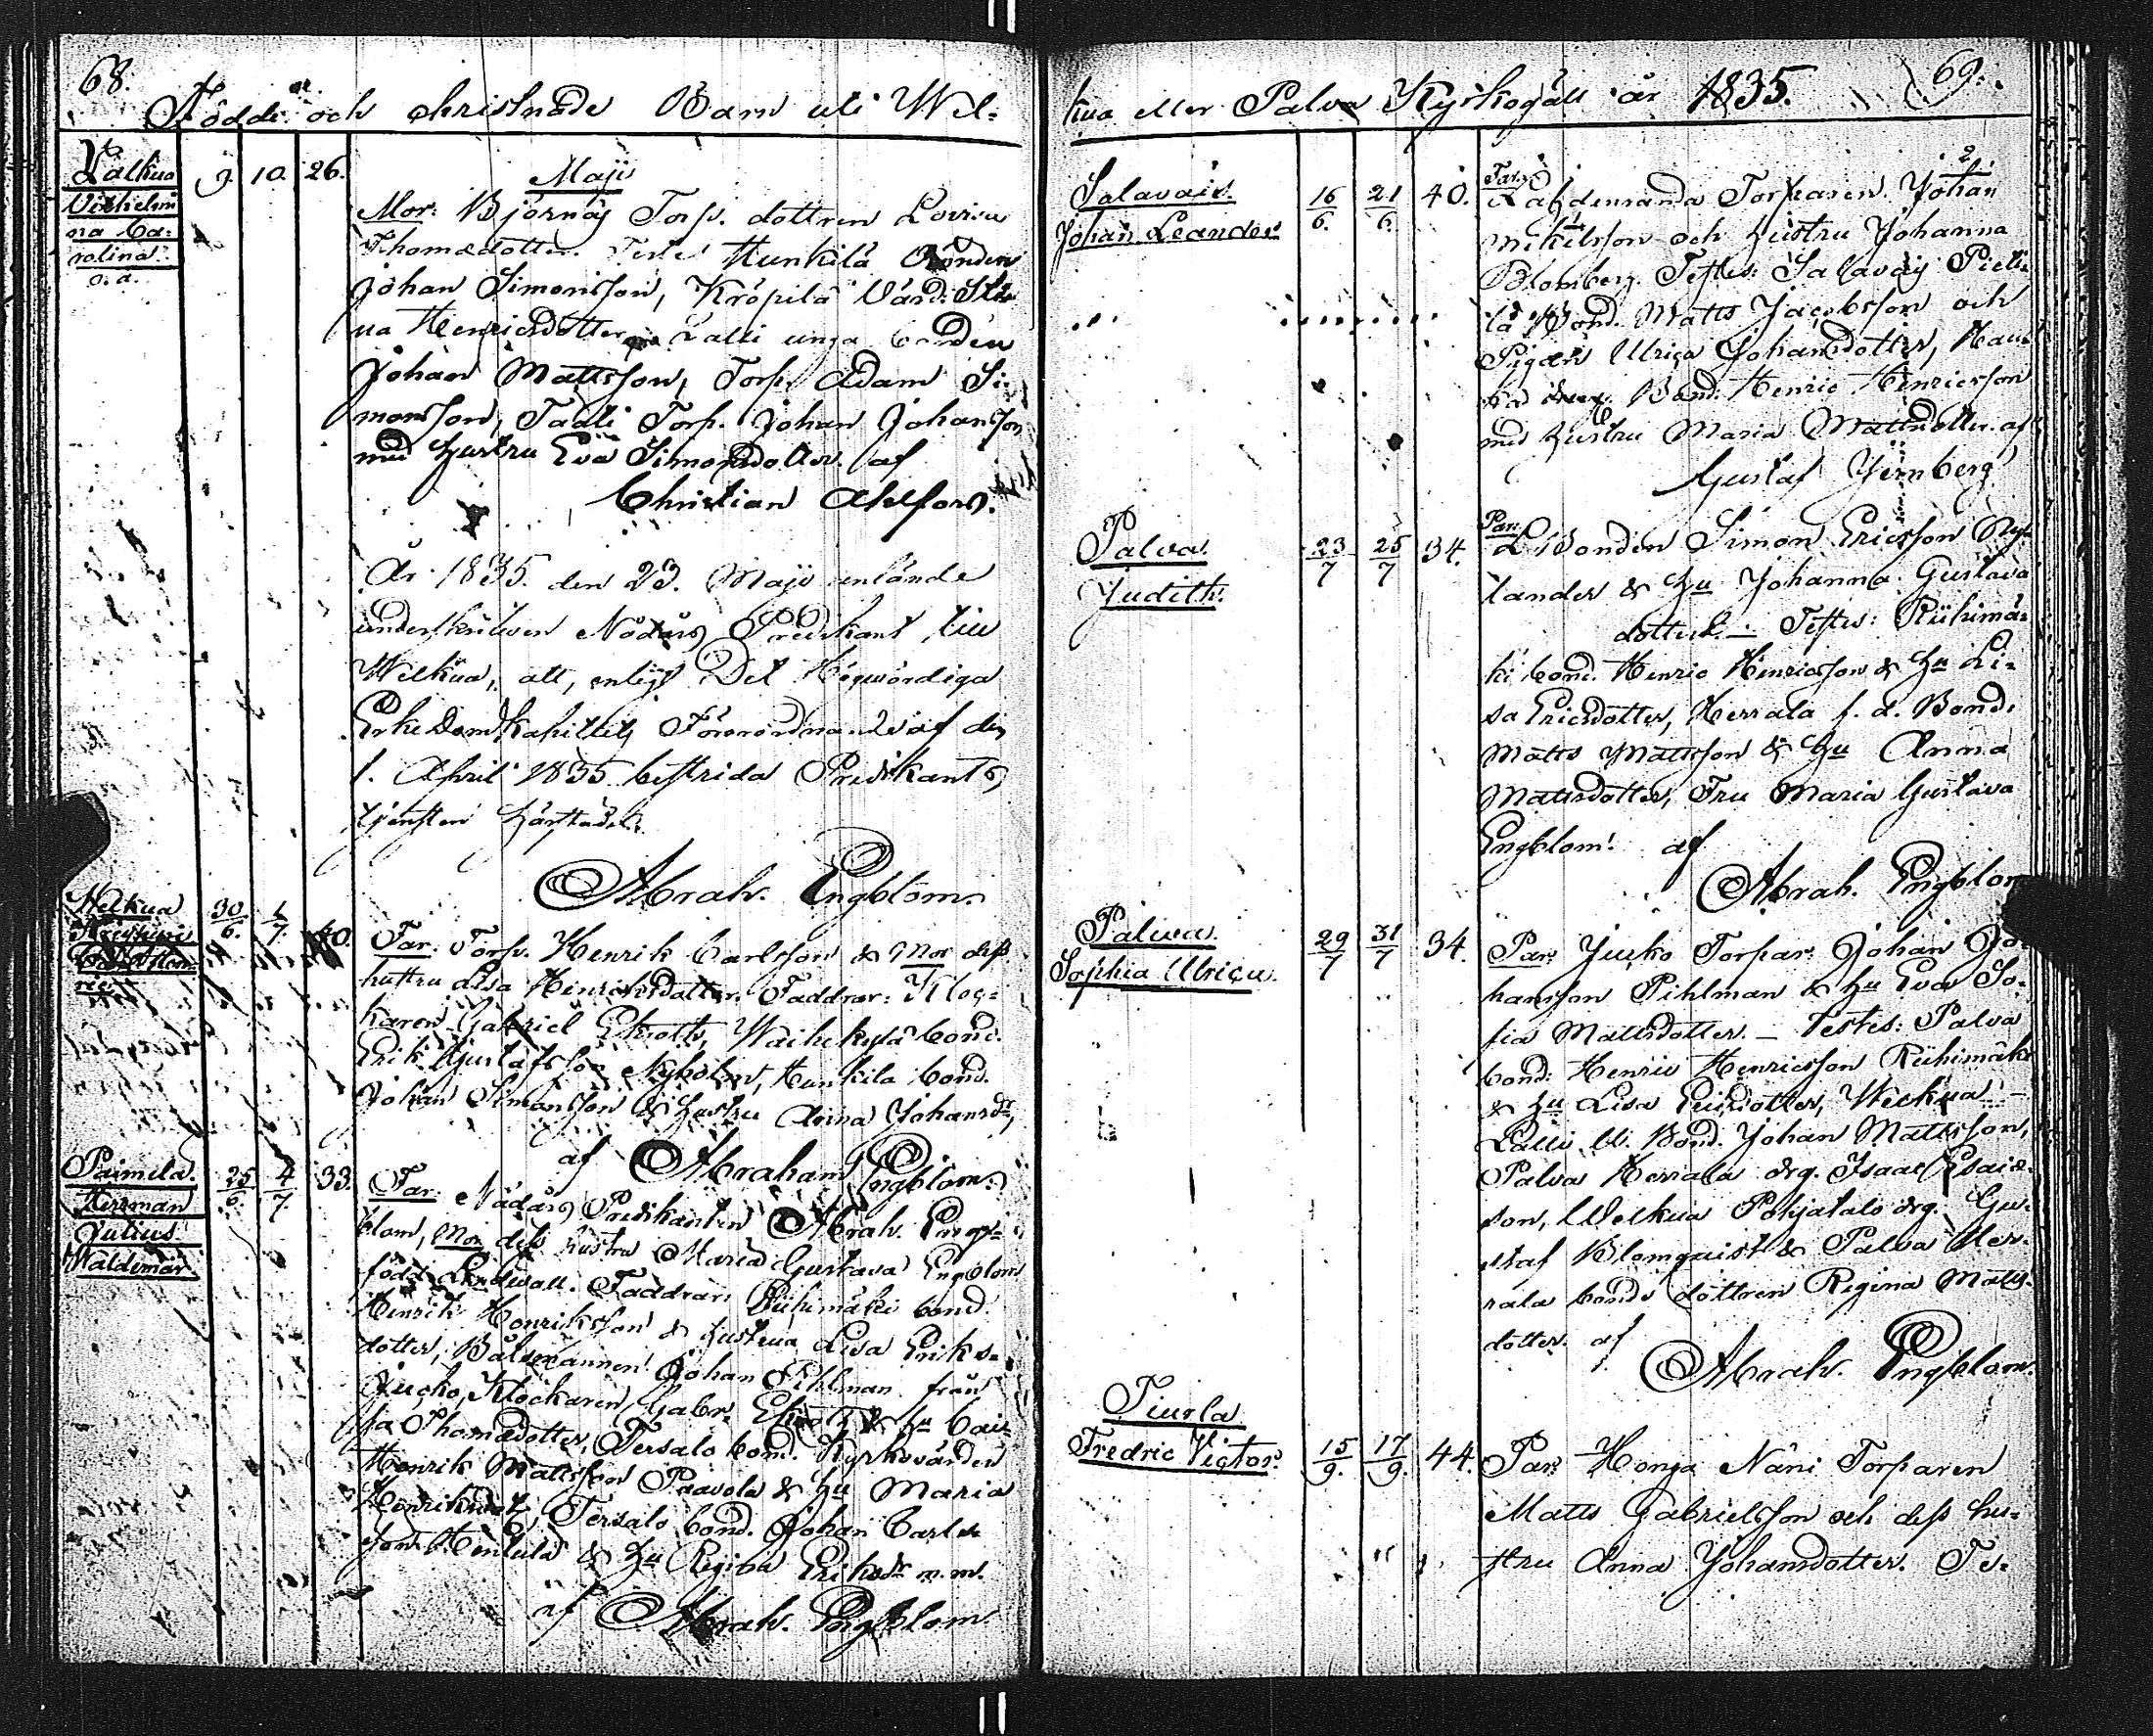 68.
Födde och christnade Barn uti Wel=
Välkua 9. 10. 26.
Vilhelmi
na Ca:
rolina
o. ä.
Maji
Mor: Björnäs Torp. dottren Lovisa
Thomædotter. Teste Hunkila Bonden
Johan Simonsson, Kröpilä Värd.
na Henricsdotter Lalli unga Bonden
Johan Mattsson, Torp. Adam Si=
monsson, Taati Torp. Johan Johansson
med hustru Eva Simonsdotter. af
Christian Ahlfors.
År 1835. den 23. Maji anlände
underskrifven Nådårs Predikant till
Welkua, att, enligt Det Högwördiga
ErkeDomKapitlets Förordnande af den
1. April 1835 bestrida Predikants
tjensten härstädes.
Abrah. Engblom.
Welkua 30/6. 1/7. 40.
Far: Torp. Henrik Carlsson & Mor dess
hustru Lisa Henricsdotter. Faddrar: Kloc=
karen Gabriel Ekroth, Waihekylä bond.
Erik Gustafsson Nyholm, Hunkila bond.
Johan Simonsson & hustru Anna Johansdr,
af Abraham Engblom.
Paimela. 25/6. 4/7. 33.
Herman
Julius
Waldemar.
Far: Nådårs Predikanten Abrah. Eng=
blom, Mor dess hustru Maria Gustava Engblom
född Lindwall. Faddrar: Riihimäki bond.
Henrik Henriksson & hustrun Lisa Eriks=
dotter, Båtsmannen Johan Pihlman från
Jucko, Klockaren Gabr. Ekroth & hu Cai=
sa Thomædotter, Tersalo bond. Kyrkovärden
Henrik Mattsson Paavola & hu Maria
Henriksdotr, Tersalo bond. Johan Carls
son Hentula & hu Regina Eriksdr m.m.
af Abrah. Engblom
kua eller Palva Kyrkogäll år 1835. 69.
Salavais. 16/6. 21/6. 40.
Johan Leander
Par: Torparen Johan
Mikelsson och hustru Johanna
Blomberg. Testes: Salavais Pieti=
lä Bond. Matts Jacobsson och
Pigan Ulrica Johansdotter, Hau
ka Bond. Henric Henricsson
med hustru Maria Mattsdotter. af
Gustaf Jernberg
Palva. 23/7 25/7 34.
Judith.
Par: Bonden Simon Ericsson Ny=
lander & hu Johanna Gustava
dotter. — Testes: Riihimä=
ki bond. Henric Henricsson & hu Li=
sa Ericsdotter, Herrala f. d. Bond.
Matts Mattsson & hu Anna
Mattsdotter, Fru Maria Gustava
Engblom. af
Abrah. Engblom
Palwa. 29/7 31/7 34.
Sophia Ulrica.
Par: Jucko Torpar. Johan Jo=
hansson Pihlman & hu Eva So=
fia Mattsdotter. — Testes: Palva
bond: Henric Henricsson Riihimäki
& hu Lisa Ericsdotter, Welkua
Lalli U. Bond. Johan Mattsson,
Palva Herrala drg. Isaac Esaias=
son, Welkua Pohjatalo drg. Gu=
staf Blomquist & Palva Her=
rala bonde dottren Regina Matts=
dotter. af
Abrah. Engblom.
Tiurla
Fredric Victor. 15/9. 17/9. 44.
Par: Honga Näni Torparen
Matts Gabrielsson och dess hu=
stru Anna Johansdotter. Te=